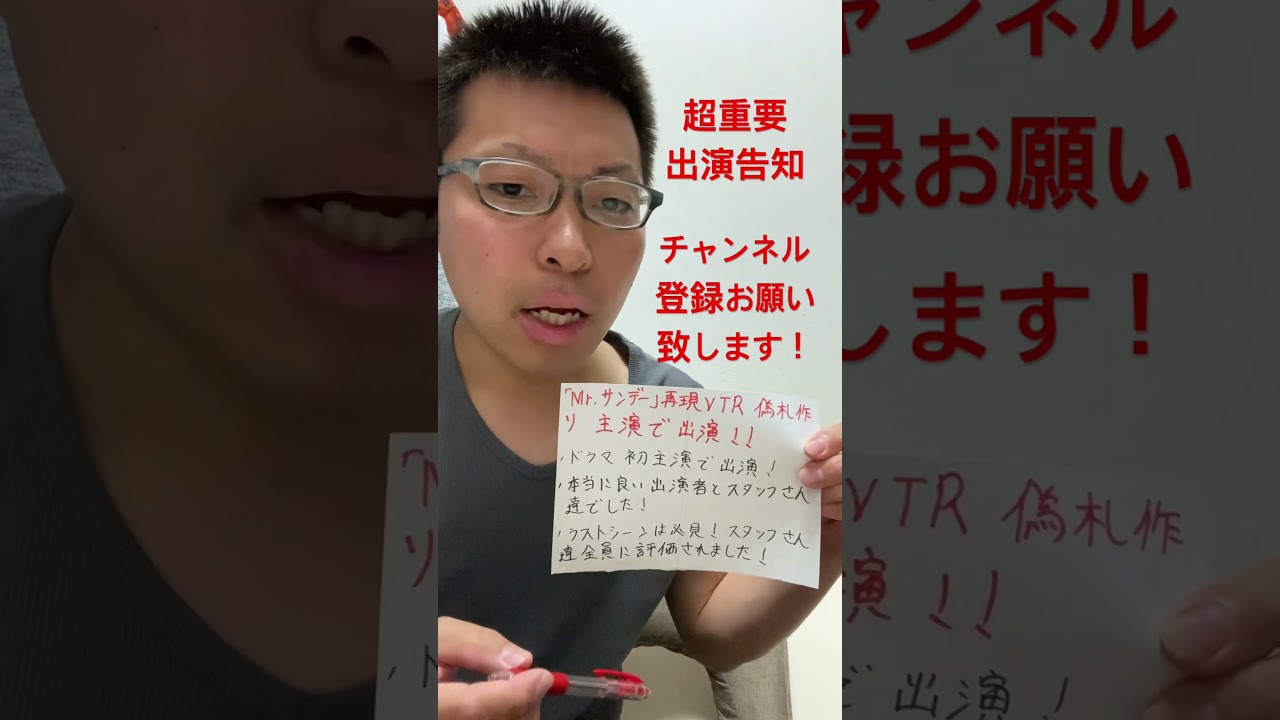 超重要
出演告知
チャンネル
登録お願い
致します！
「Mr.サンデー」再現VTR 偽札作
り 主演で出演！！
・ドラマ 初主演で出演！
・本当に良い出演者とスタッフさん
達でした！
・ラストシーンは必見！スタッフさん
達全員に評価されました！
チャンネル
録お願い
します！
「M
VTR 偽札作
り
演！！
・ド
で出演！